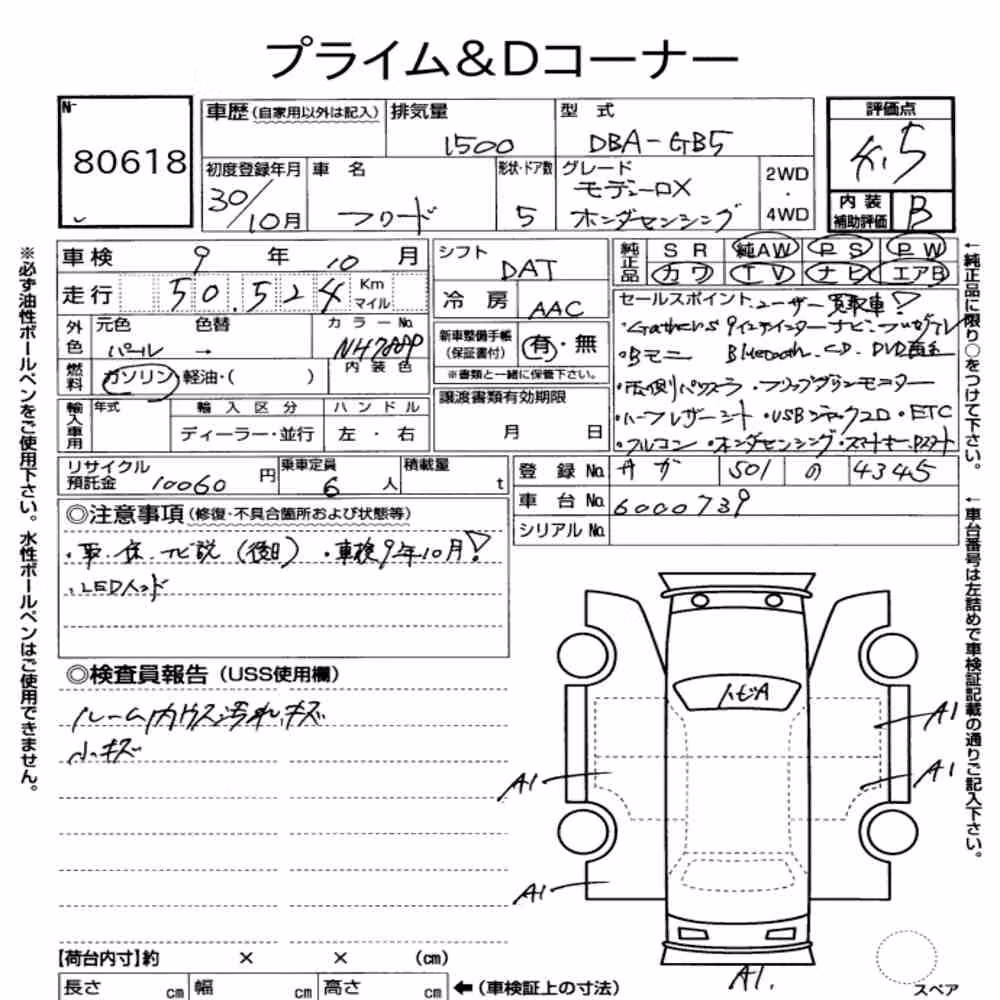 プライム&Dコーナー
N-
80618
車歴(自家用以外は記入)
排気量
1500
型 式
DBA-GB5
評価点
4.5
内装
補助評価
B
初度登録年月
30/10月
車 名
フリード
形状・ドア数
5
グレード
モデューロX
ホンダセンシング
2WD
・
4WD
車検 9 年 10 月
走行 50,524 Km
マイル
外色
元色
色替
カラーNo.
パール →
燃料
ガソリン・軽油・( )
内装色
輸入車用
年式
輸入区分
ハンドル
ディーラー・並行
左・右
シフト
DAT
冷房
AAC
新車整備手帳
(保証書付)
有・無
※書類と一緒に保管下さい。
譲渡書類有効期限
月 日
純正品
SR 純AW PS PW
カワ TV ナビ エアB
セールスポイント ユーザー買取車!
・Gathers 9インチインターナビ・フルセグTV
・Bモニ Bluetooth.CD.DVD再生
・両側パワスラ ・フリップダウンモニター
・ハーフレザーシート ・USBジャック2口 ・ETC
・クルコン ・ホンダセンシング ・スマートキー
リサイクル
預託金
10060 円
乗車定員
6 人
積載量
t
登録No.
501 の 4345
車台No.
6000739
シリアルNo.
◎注意事項(修復・不具合箇所および状態等)
・取.保.ナビ説(後日) ・車検9年10月!
・LEDヘッド
◎検査員報告(USS使用欄)
ルーム内ウス汚れ、キズ
小キズ
A1
A1
A1
A1
A1.
スペア
【荷台内寸】約 × × (cm)
長さ cm 幅 cm 高さ cm
←(車検証上の寸法)
※必ず油性ボールペンをご使用下さい。水性ボールペンはご使用できません。
←純正品に限り○をつけて下さい。
←車台番号は左詰めで車検証記載の通りご記入下さい。